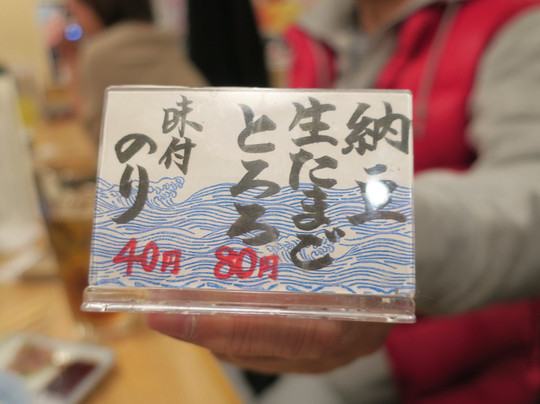 納豆
生たまご
とろろ
80円
味付
のり
40円